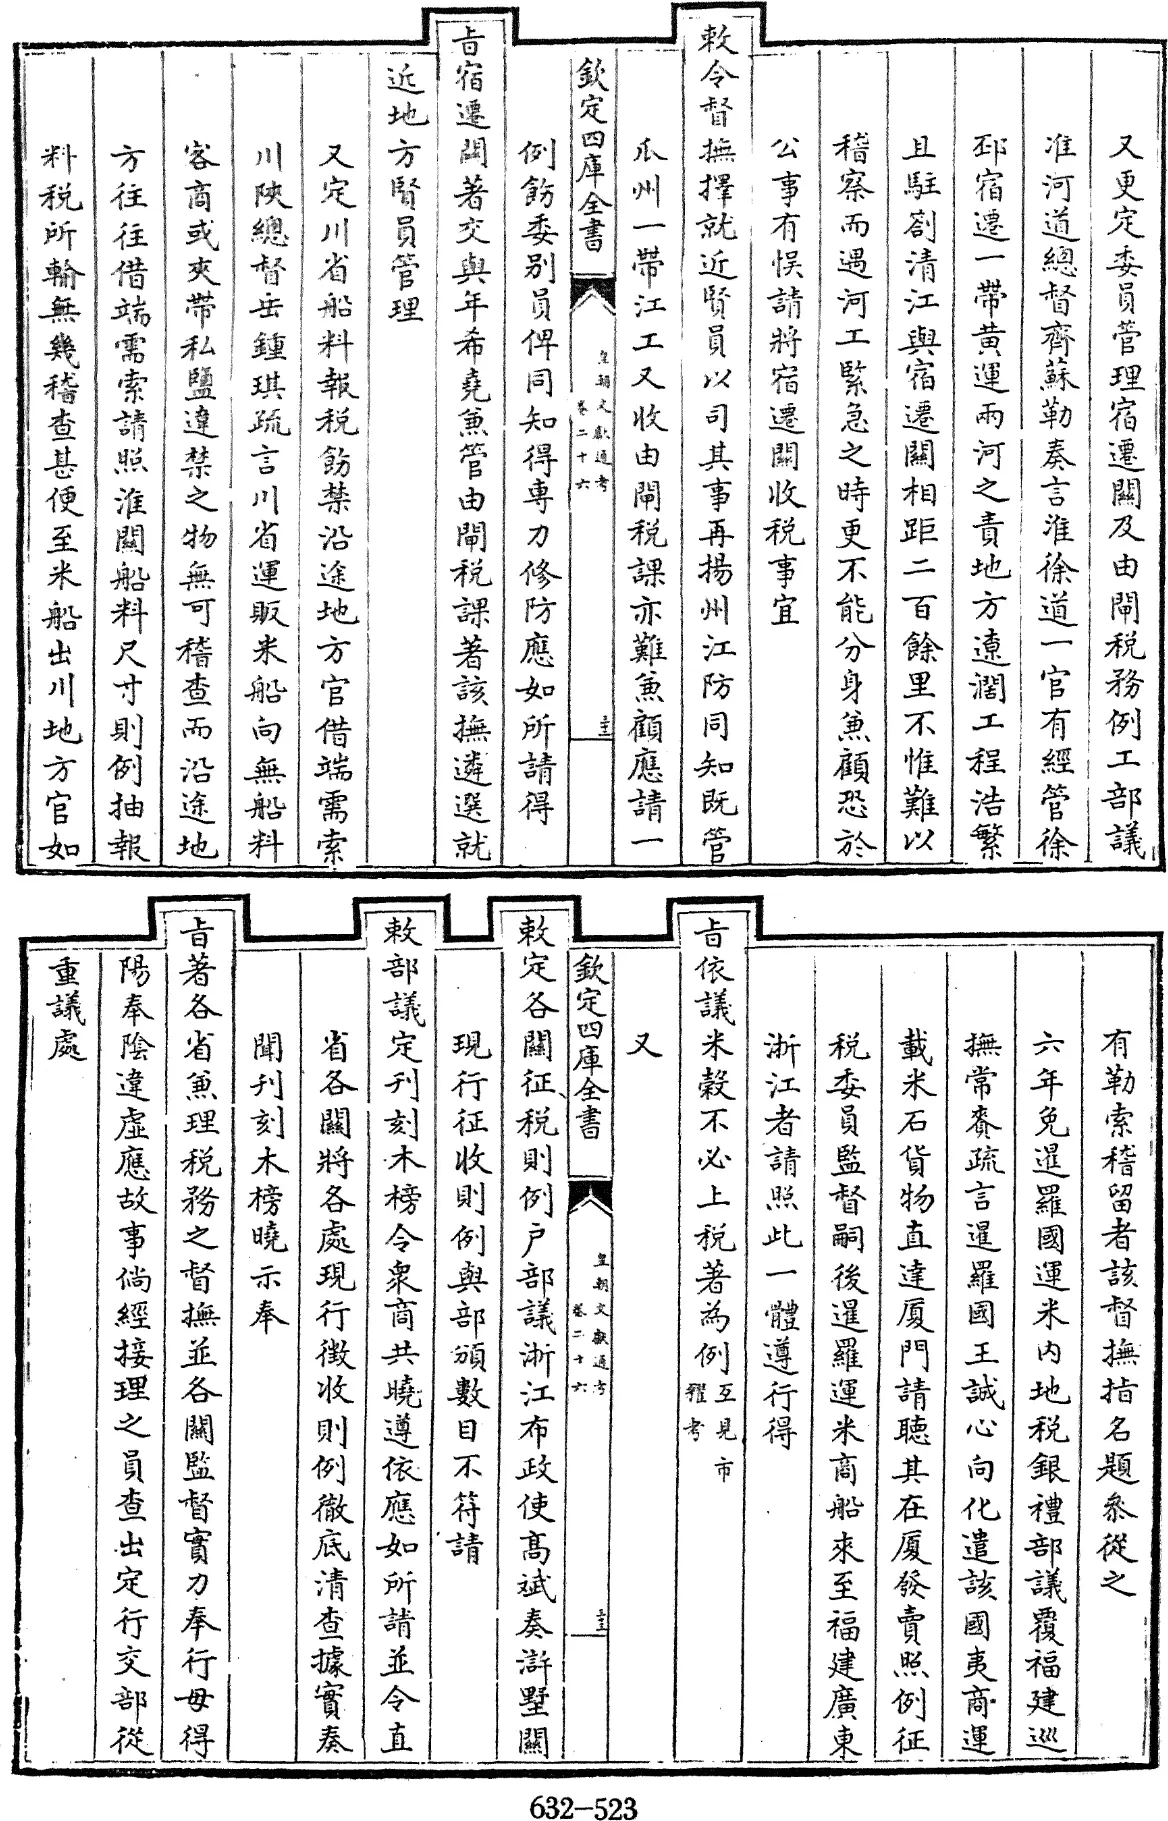 又更定委員管理宿遷關及由閘税務例工部議
淮河道總督齊蘇勒奏言淮徐道一官有經管徐
邳宿遷一帶黄運兩河之責地方遼濶工程浩繁
且駐劄清江與宿遷關相距二百餘里不惟難以
稽察而遇河工緊急之時更不能分身兼顧恐於
公事有悮請將宿遷關收税事宜
敕令督撫擇就近賢員以司其事再揚州江防同知既管
瓜州一帶江工又收由閘税課亦難兼顧應請一
欽定四庫全書
皇朝文獻通考
卷二十六
圭
例飭委别員俾同知得専力修防應如所請得
㫖宿遷關著交與年希堯兼管由閘税課著該撫遴選就
近地方賢員管理
又定川省船料報税飭禁沿途地方官借端需索
川陜總督岳鍾琪疏言川省運販米船向無船料
客商或夾帶私鹽違禁之物無可稽查而沿途地
方往往借端需索請照淮關船料尺寸則例抽報
料税所輸無幾稽查甚便至米船出川地方官如
有勒索稽留者該督撫指名題參從之
六年免暹羅國運米内地税銀禮部議覆福建巡
撫常賚疏言暹羅國王誠心向化遣該國夷商運
載米石貨物直達厦門請聽其在厦發賣照例征
税委員監督嗣後暹羅運米商船來至福建廣東
浙江者請照此一體遵行得
㫖依議米榖不必上税著為例互見市
糴考
又
欽定四庫全書
皇朝文獻通考
卷二十六
圭
敕定各關征税則例户部議浙江布政使髙斌奏滸墅關
現行征收則例與部頒數目不符請
敕部議定刋刻木榜令衆商共曉遵依應如所請並令直
省各關將各處現行徴收則例徹底清查據實奏
聞刋刻木榜曉示奉
㫖著各省兼理税務之督撫並各關監督實力奉行毋得
陽奉陰違虚應故事倘經接理之員查出定行交部從
重議處
632—523